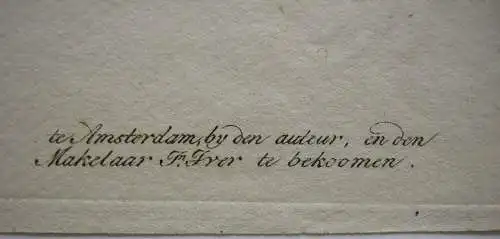 te Amsterdam, by den auteur, en den
Makelaar F. Yver te bekoomen.